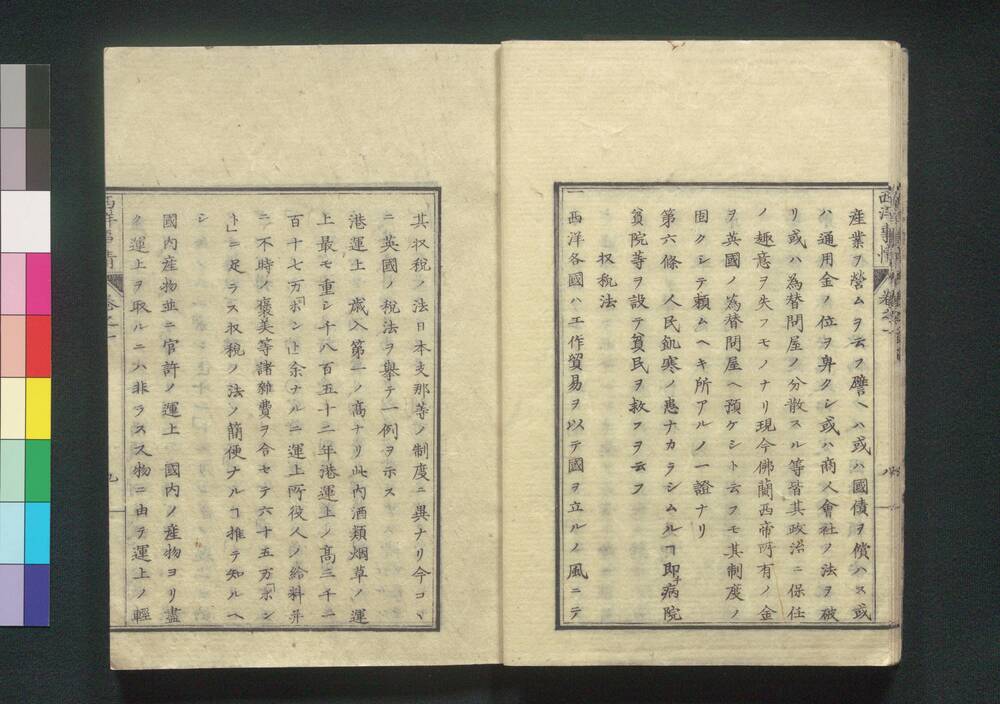 産業ヲ營ムヲ云フ譬ヘハ或ハ國債ヲ償ハス或
ハ通用金ノ位ヲ卑クシ或ハ商人會社ノ法ヲ破
リ或ハ為替問屋ノ分散スル等皆其政治ニ保任
ノ趣意ヲ失フモノナリ現今佛蘭西帝所有ノ金
ヲ英國ノ為替問屋ヘ預ケシト云フモ其制度ノ
固クシテ頼ムヘキ所アルノ一證ナリ
第六條 人民飢寒ノ患ナカラシムルヿ即チ病院
貧院等ヲ設テ貧民ヲ救フヲ云フ
収税法
一西洋各國ハ工作貿易ヲ以テ國ヲ立ルノ風ニテ
西洋事情 巻之一 八
其収税ノ法日本支那等ノ制度ニ異ナリ今コヽ
ニ英國ノ税法ヲ擧テ一例ヲ示ス
港運上 歳入第一ノ高ナリ此内酒類烟草ノ運
上最モ重シ千八百五十二年港運上ノ高三千一
百十七万「ポンド」余ナルニ運上所役人ノ給料并
ニ不時ノ褒美等諸雜費ヲ合セテ六十五万「ポン
ド」ニ足ラス収税ノ法ノ簡便ナルヿ推テ知ルヘ
シ
國内産物並ニ官許ノ運上 國内ノ産物ヨリ盡
ク運上ヲ取ルニハ非ラスス物ニ由ヲ運上ノ輕
西洋事情 巻之一 九